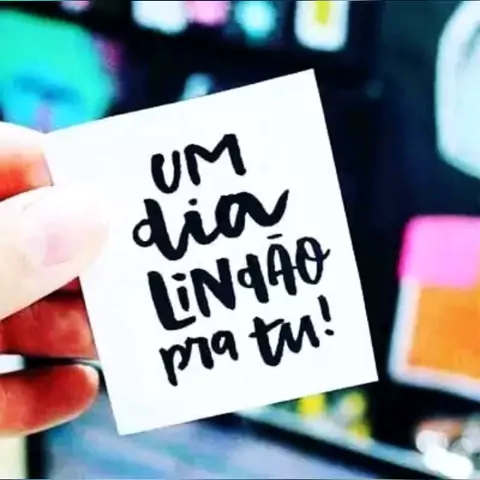 UM
dia
LiNdÃO
pra tu!